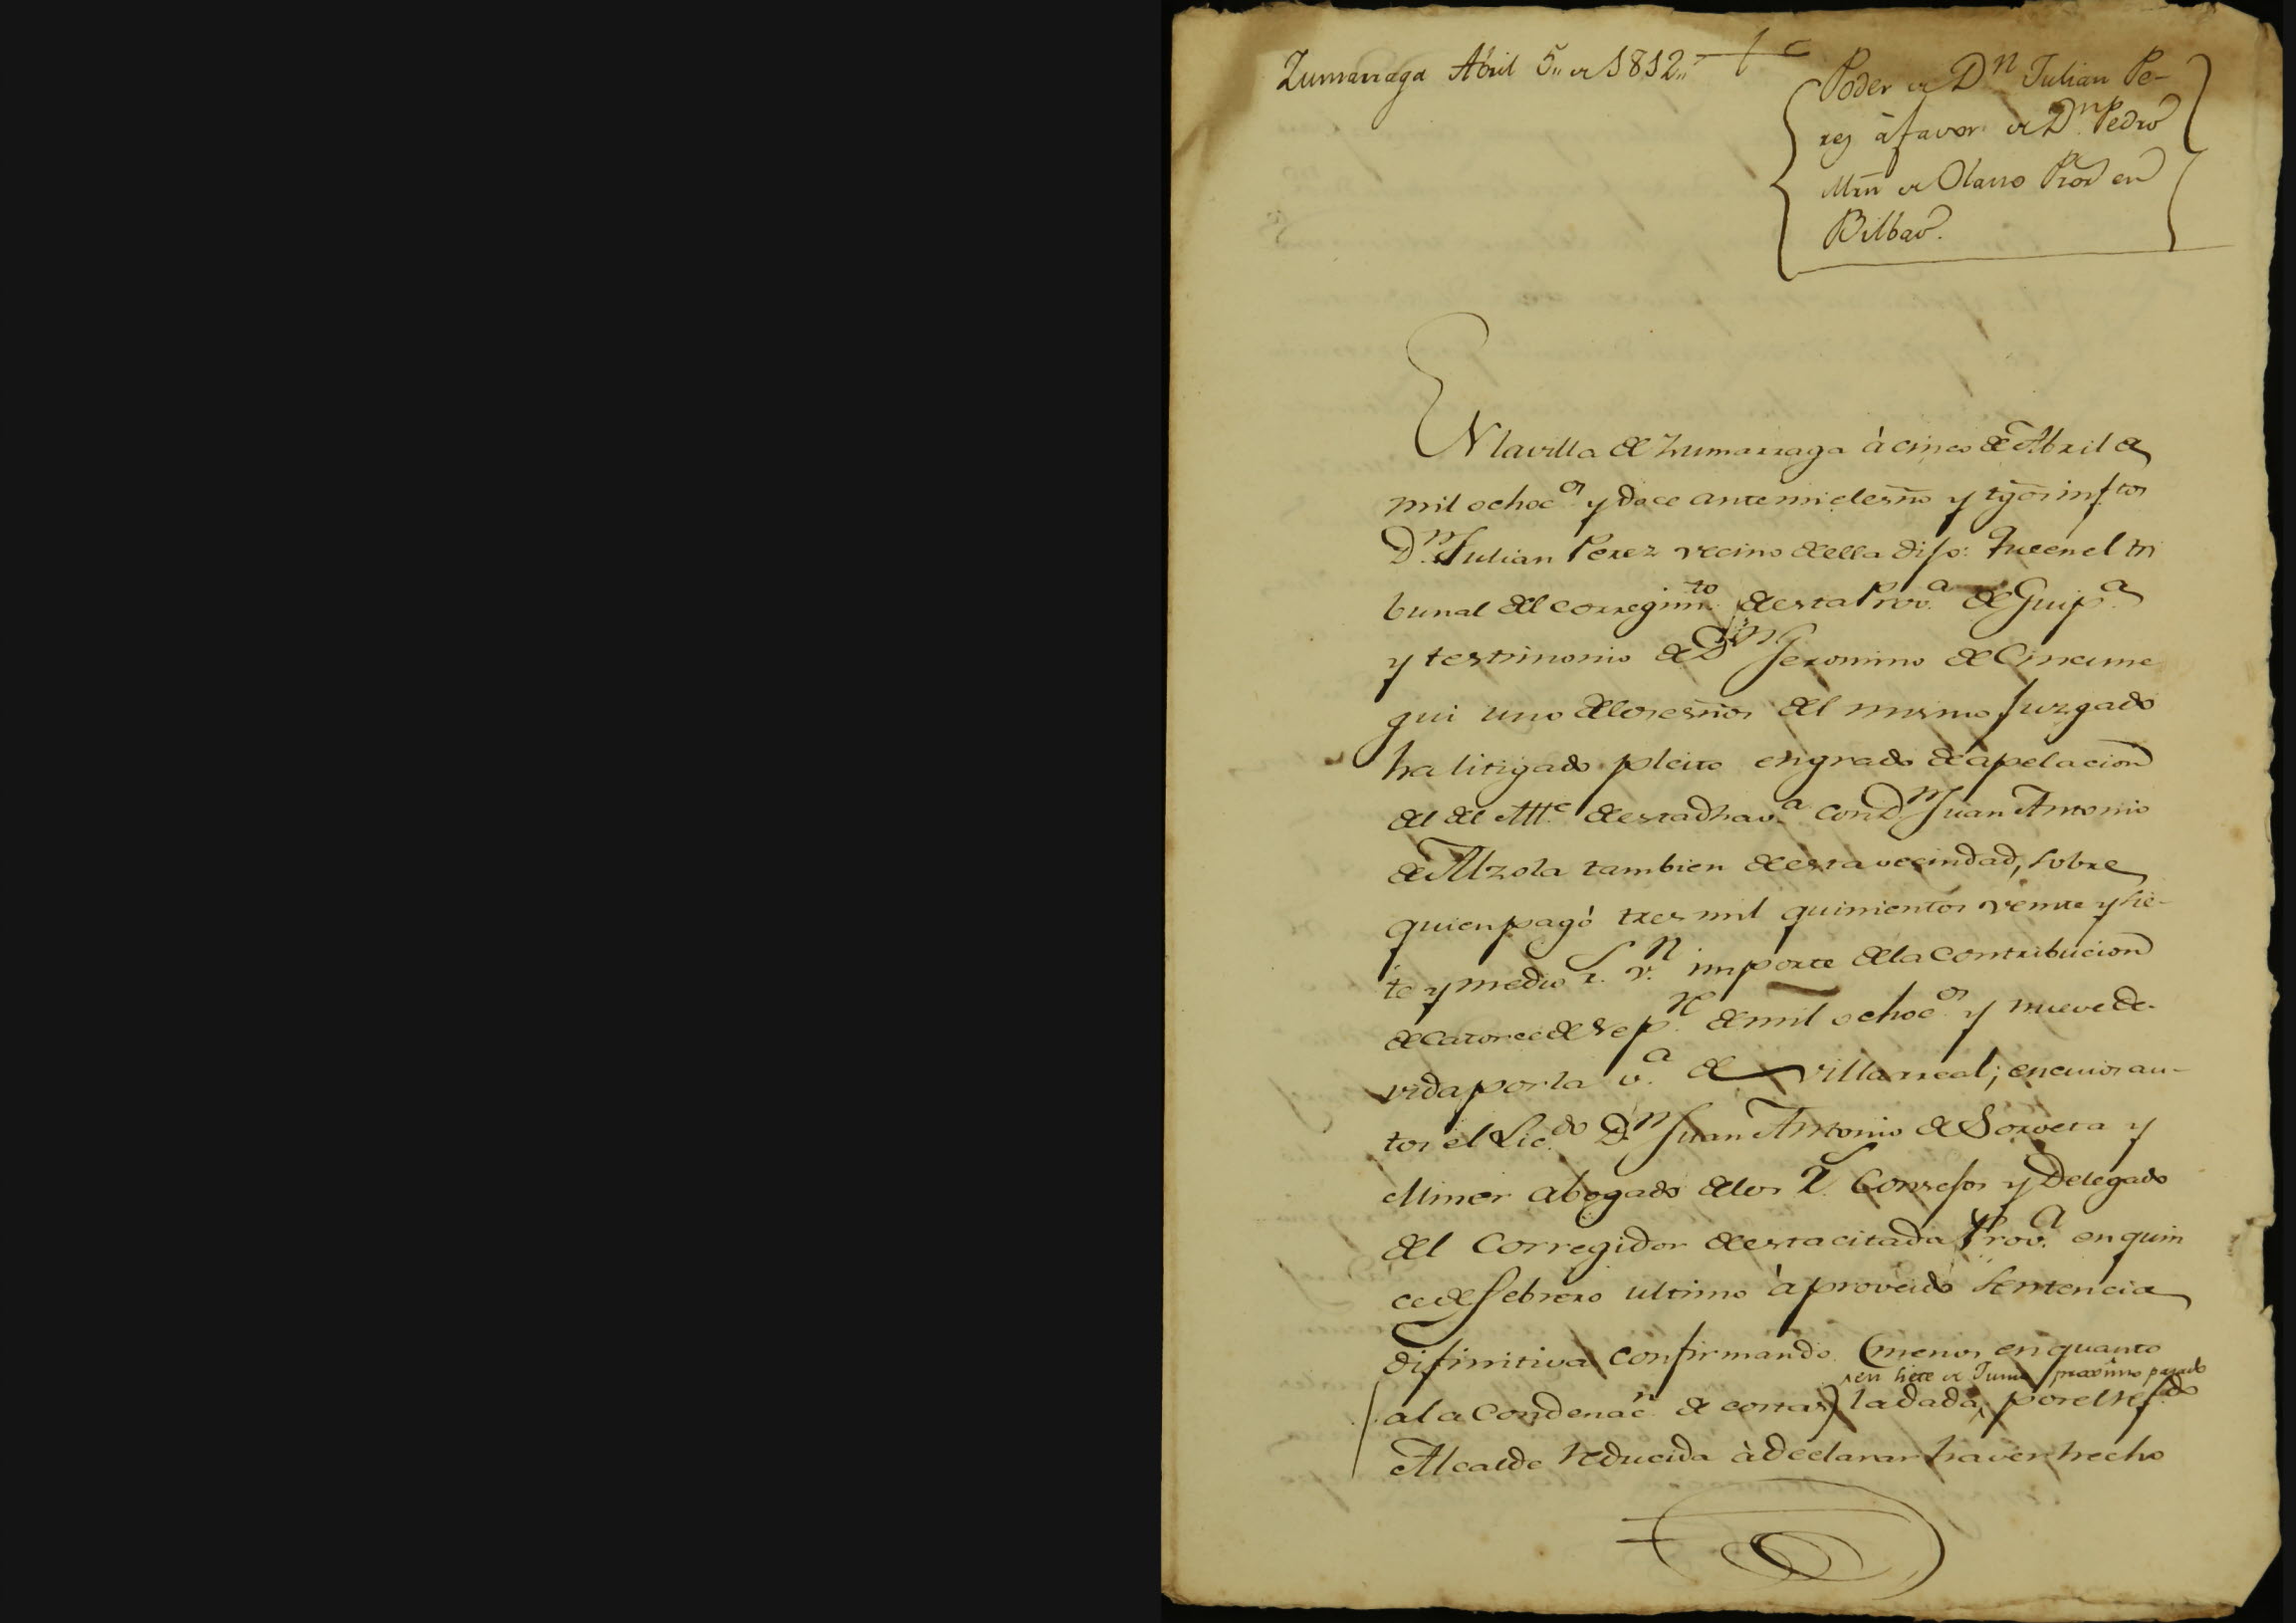 Zumarraga Abril 5,, de 1812,,
Poder de Dn Julian Pe-
rez à favor de Dn Pedro
Mrn de Olano Pror en
Bilbao.
EN la villa de Zumarraga à cinco de Abril de
mil ochocos y doce ante mi el esño y tgos infros
Dn Julian Perez vecino de ella dijo: Que en el tri
bunal del corregimto de esta Prova de Guipa
y testimonio de Dn Geronimo de Cincune
gui uno de los esños del mismo Juzgado
ha litigado pleito en grado de apelacion
del del Alle de esta dha va con Dn Juan Antonio
de Alzola tambien de esta vecindad, sobre
quien pagó tres mil quinientos veinte y sie-
te y medio rs vn importe de la contribucion
de catorce de Sepre de mil ochocos y nueve de-
vida por la va de Villarreal; en cuios au-
tos el Licdo Dn Juan Antonio de Soroeta y
Miner abogado de los Rs Consejos y Delegado
del Corregidor de esta citada Prova en quin
ce de Febrero ultimo à proveido Sentencia
difinitiva confirmando (menos en quanto
en siete de Junio proximo pasado
a la condenacn de costas) la dada, por el refdo
Alcalde reducida à declarar haver hecho